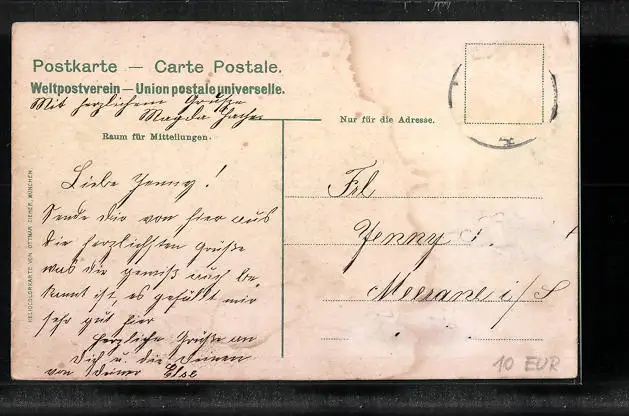 Postkarte — Carte Postale.
Weltpostverein — Union postale universelle.
Mit herzlichem Gruße
Magda
Raum für Mitteilungen.
Nur für die Adresse.
HELIOCOLORKARTE VON OTTMAR ZIEHER, MÜNCHEN.
Liebe Jenny!
Sende dir von hier aus
die herzlichsten Grüße
was dir gewiß auch be-
kannt ist, es gefällt mir
sehr gut hier
Herzliche Grüße an
Dich u. die Deinen
von deiner Else
Frl
Jenny
Meerane i/S
10 EUR